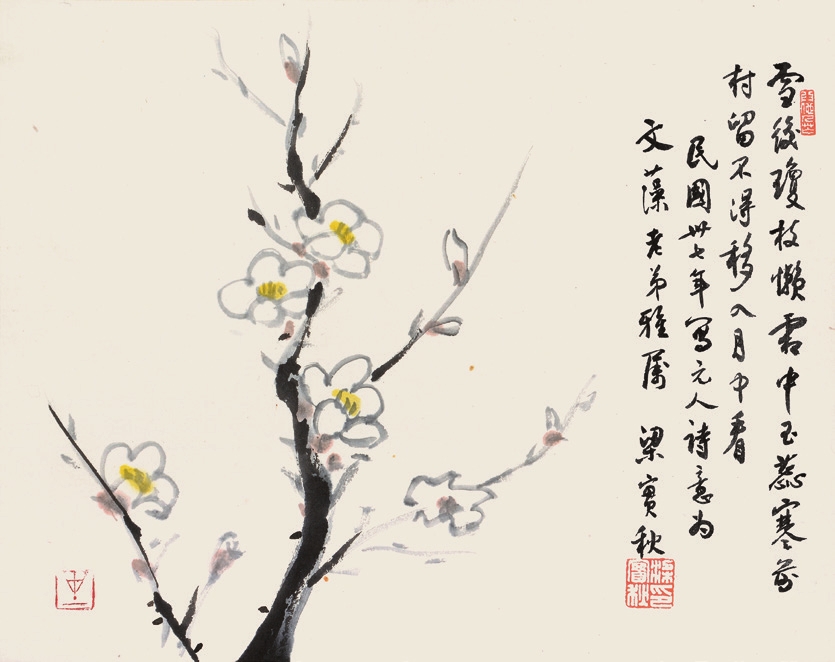 雪後瓊枝懶霜中玉蕊寒前
村留不得移入月中看
民國卅七年寫元人詩意為
文藻老弟雅屬 梁實秋
梁實秋印